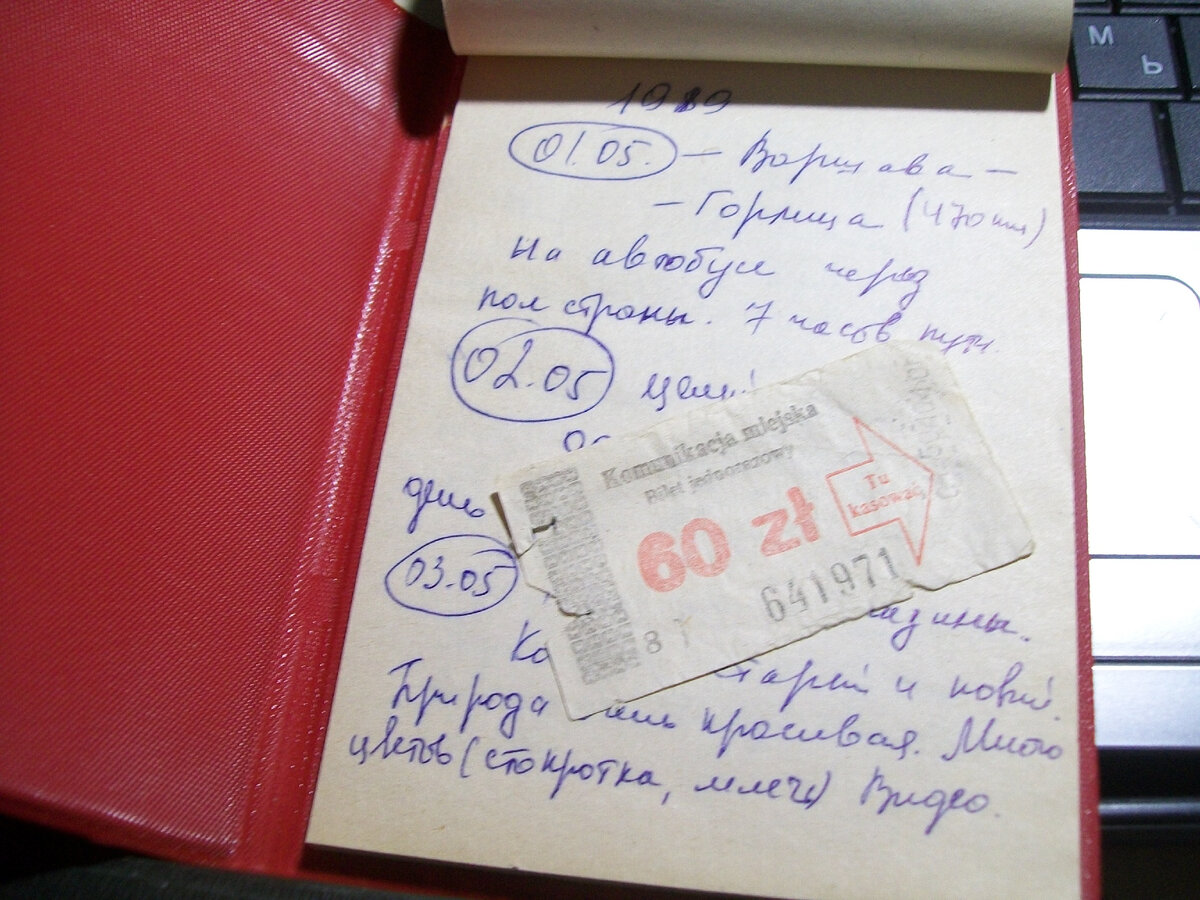 1989
01.05. — Варшава —
— Горлица (470 км)
На автобусе через
пол страны. 7 часов пути.
02.05
день
03.05
азины.
Ко старый и новый.
Природа очень красивая. Много
цветов (стокротка, млечь) Видео.
Komunikacja miejska
Bilet jednorazowy
60 zł
Tu
kasować
641971
8
М
Ь